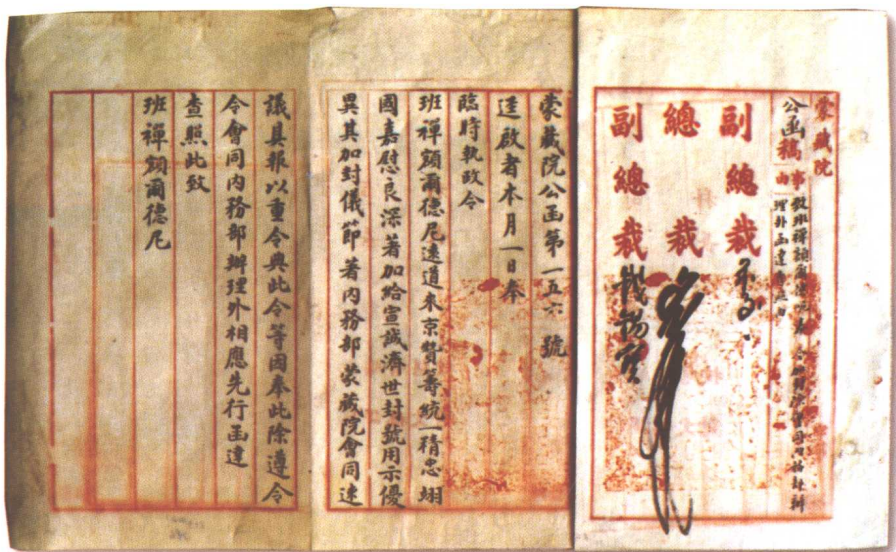 蒙藏院
公函稿
事由
致班禪額爾德尼
理外函達查照由
副總裁
總裁
副總裁
蒙藏院公函第一五六號
逕啟者本月一日奉
臨時執政令
班禪額爾德尼遠道來京贊籌統一精忠翊
國嘉慰良深著加給宣誠濟世封號用示優
異其加封儀節著內務部蒙藏院會同速
議具報以重令典此令等因奉此除遵令
令會同內務部辦理外相應先行函達
查照此致
班禪額爾德尼